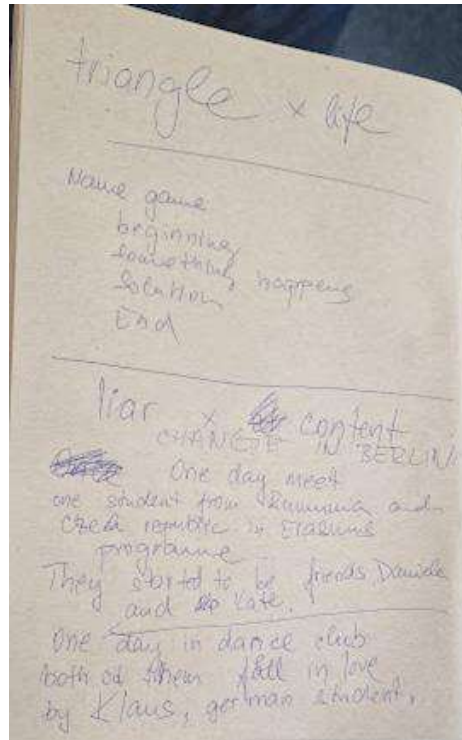 triangle x life
Name game
beginning
something happens
solution
End
liar x content
CHANGE IN BERLIN
One day meet
one student from Rumunia and
Czech republic in Erasmus
programme
They started to be friends Daniela
and Kate.
One day in dance club
both of them fall in love
by Klaus, german student.